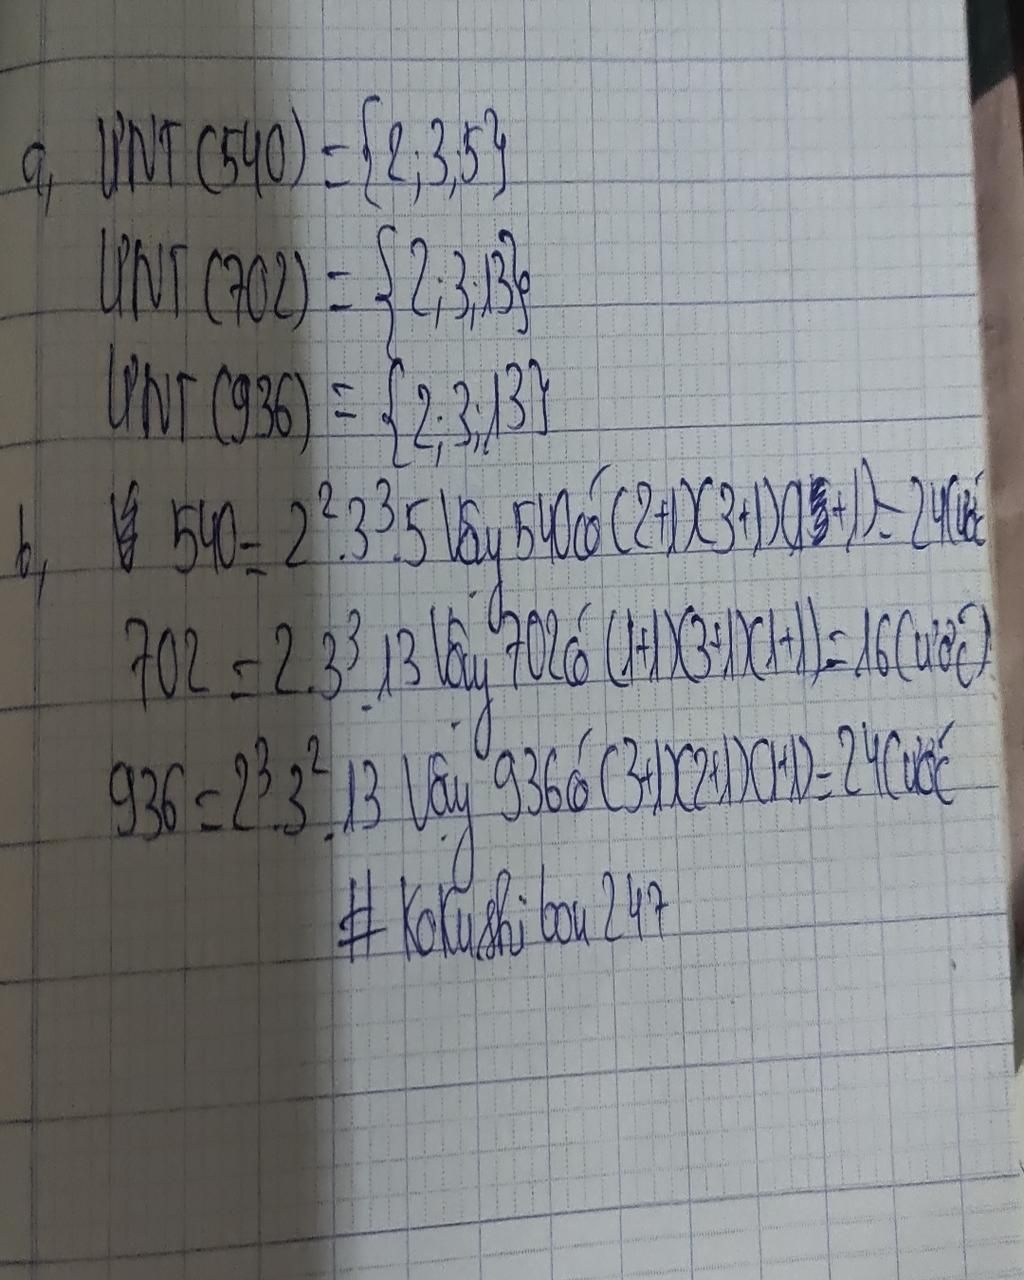 a, ƯNT (540) = {2;3;5}
ƯNT (702) = {2;3;13}
ƯNT (936) = {2;3;13}
b, 540 = 2².3³.5 Vậy 540 có (2+1)(3+1)(1+1) = 24 (ước
702 = 2.3³.13 Vậy 702 có (1+1)(3+1)(1+1) = 16 (ước)
936 = 2³.3².13 Vậy 936 có (3+1)(2+1)(1+1) = 24 (ước
# Kokushibou 247